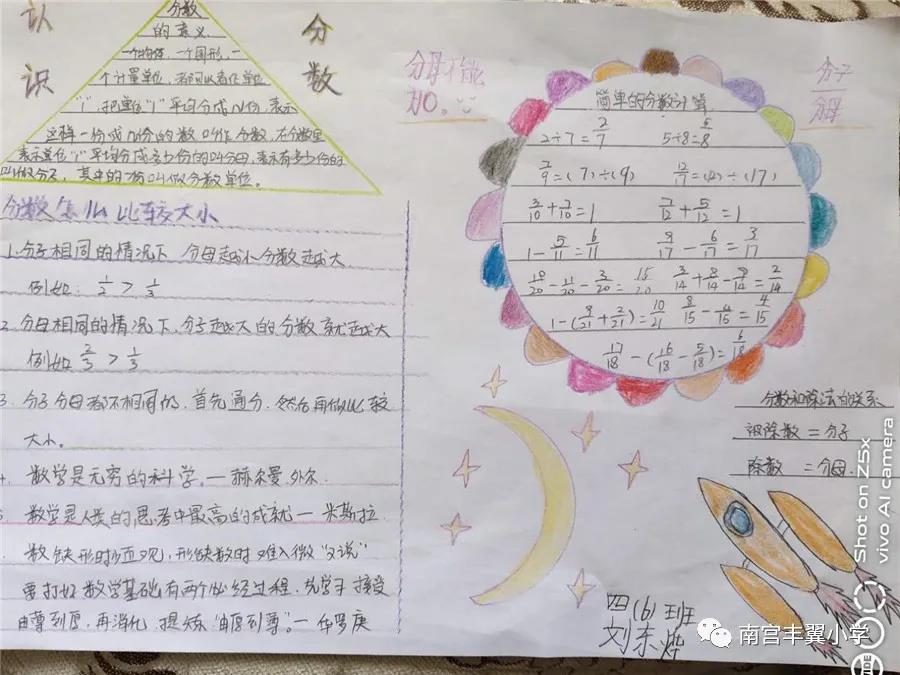 认识
分数
分数
的意义
一个物体、一个图形、一
个计量单位,都可以看作单位
“1”,把单位“1”平均分成N份,表示
这样一份或N份的数叫作分数,在分数里
表示单位“1”平均分成多少份的叫分母,表示有多少份的
叫做分子,其中的1份叫做分数单位。
分数怎么比较大小
1.分子相同的情况下 分母越小分数越大
例如:1/2 > 1/3
2.分母相同的情况下,分子越大的分数就越大
例如 2/3 > 1/3
3.分子分母都不相同的,首先通分,然后再做比较
大小。
数学是无穷的科学。—赫尔曼外尔.
数学是人类的思考中最高的成就—米斯拉
数缺形时少直观,形缺数时难入微“又说”
要打好数学基础有两个必经过程,先学习 接受
由薄到厚,再消化,提炼“由厚到薄”—华罗庚
分母不能
为0。
分子
分母
简单的分数计算
2÷7=2/7 5÷8=5/8
7/9=(7)÷(9) 12/17=(12)÷(17)
3/10+7/10=1 7/12+5/12=1
1-5/11=6/11 9/17-6/17=3/17
3/14+8/14-9/14=2/14
1-(9/21+2/21)=10/21 8/15-4/15=4/15
17/18-(16/18-5/18)=6/18
分数和除法的联系
被除数=分子
除数 =分母.
四(6)班
刘东烨
南宫丰翼小学
Shot on Z5x
vivo AI camera